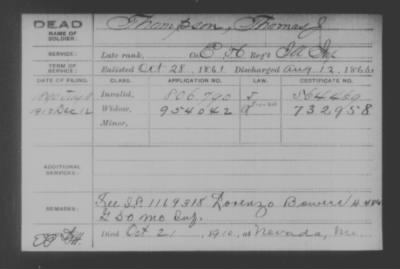 DEAD
NAME OF
SOLDIER:
Thompson, Thomas J
SERVICE:
Late rank, Co. Reg't
TERM OF
SERVICE:
Enlisted Oct 28, 1861 Discharged Aug 12, 1865
DATE OF FILING. CLASS. APPLICATION NO. LAW. CERTIFICATE NO.
Invalid, 806.790 564469
Dec 16 Widow, 954042 732958
Minor,
ADDITIONAL
SERVICES:
REMARKS:
See 1169318 Lorenzo Bowers
G 50 Mo Inf.
Died Oct 21, 1910, at Nevada, Mo.